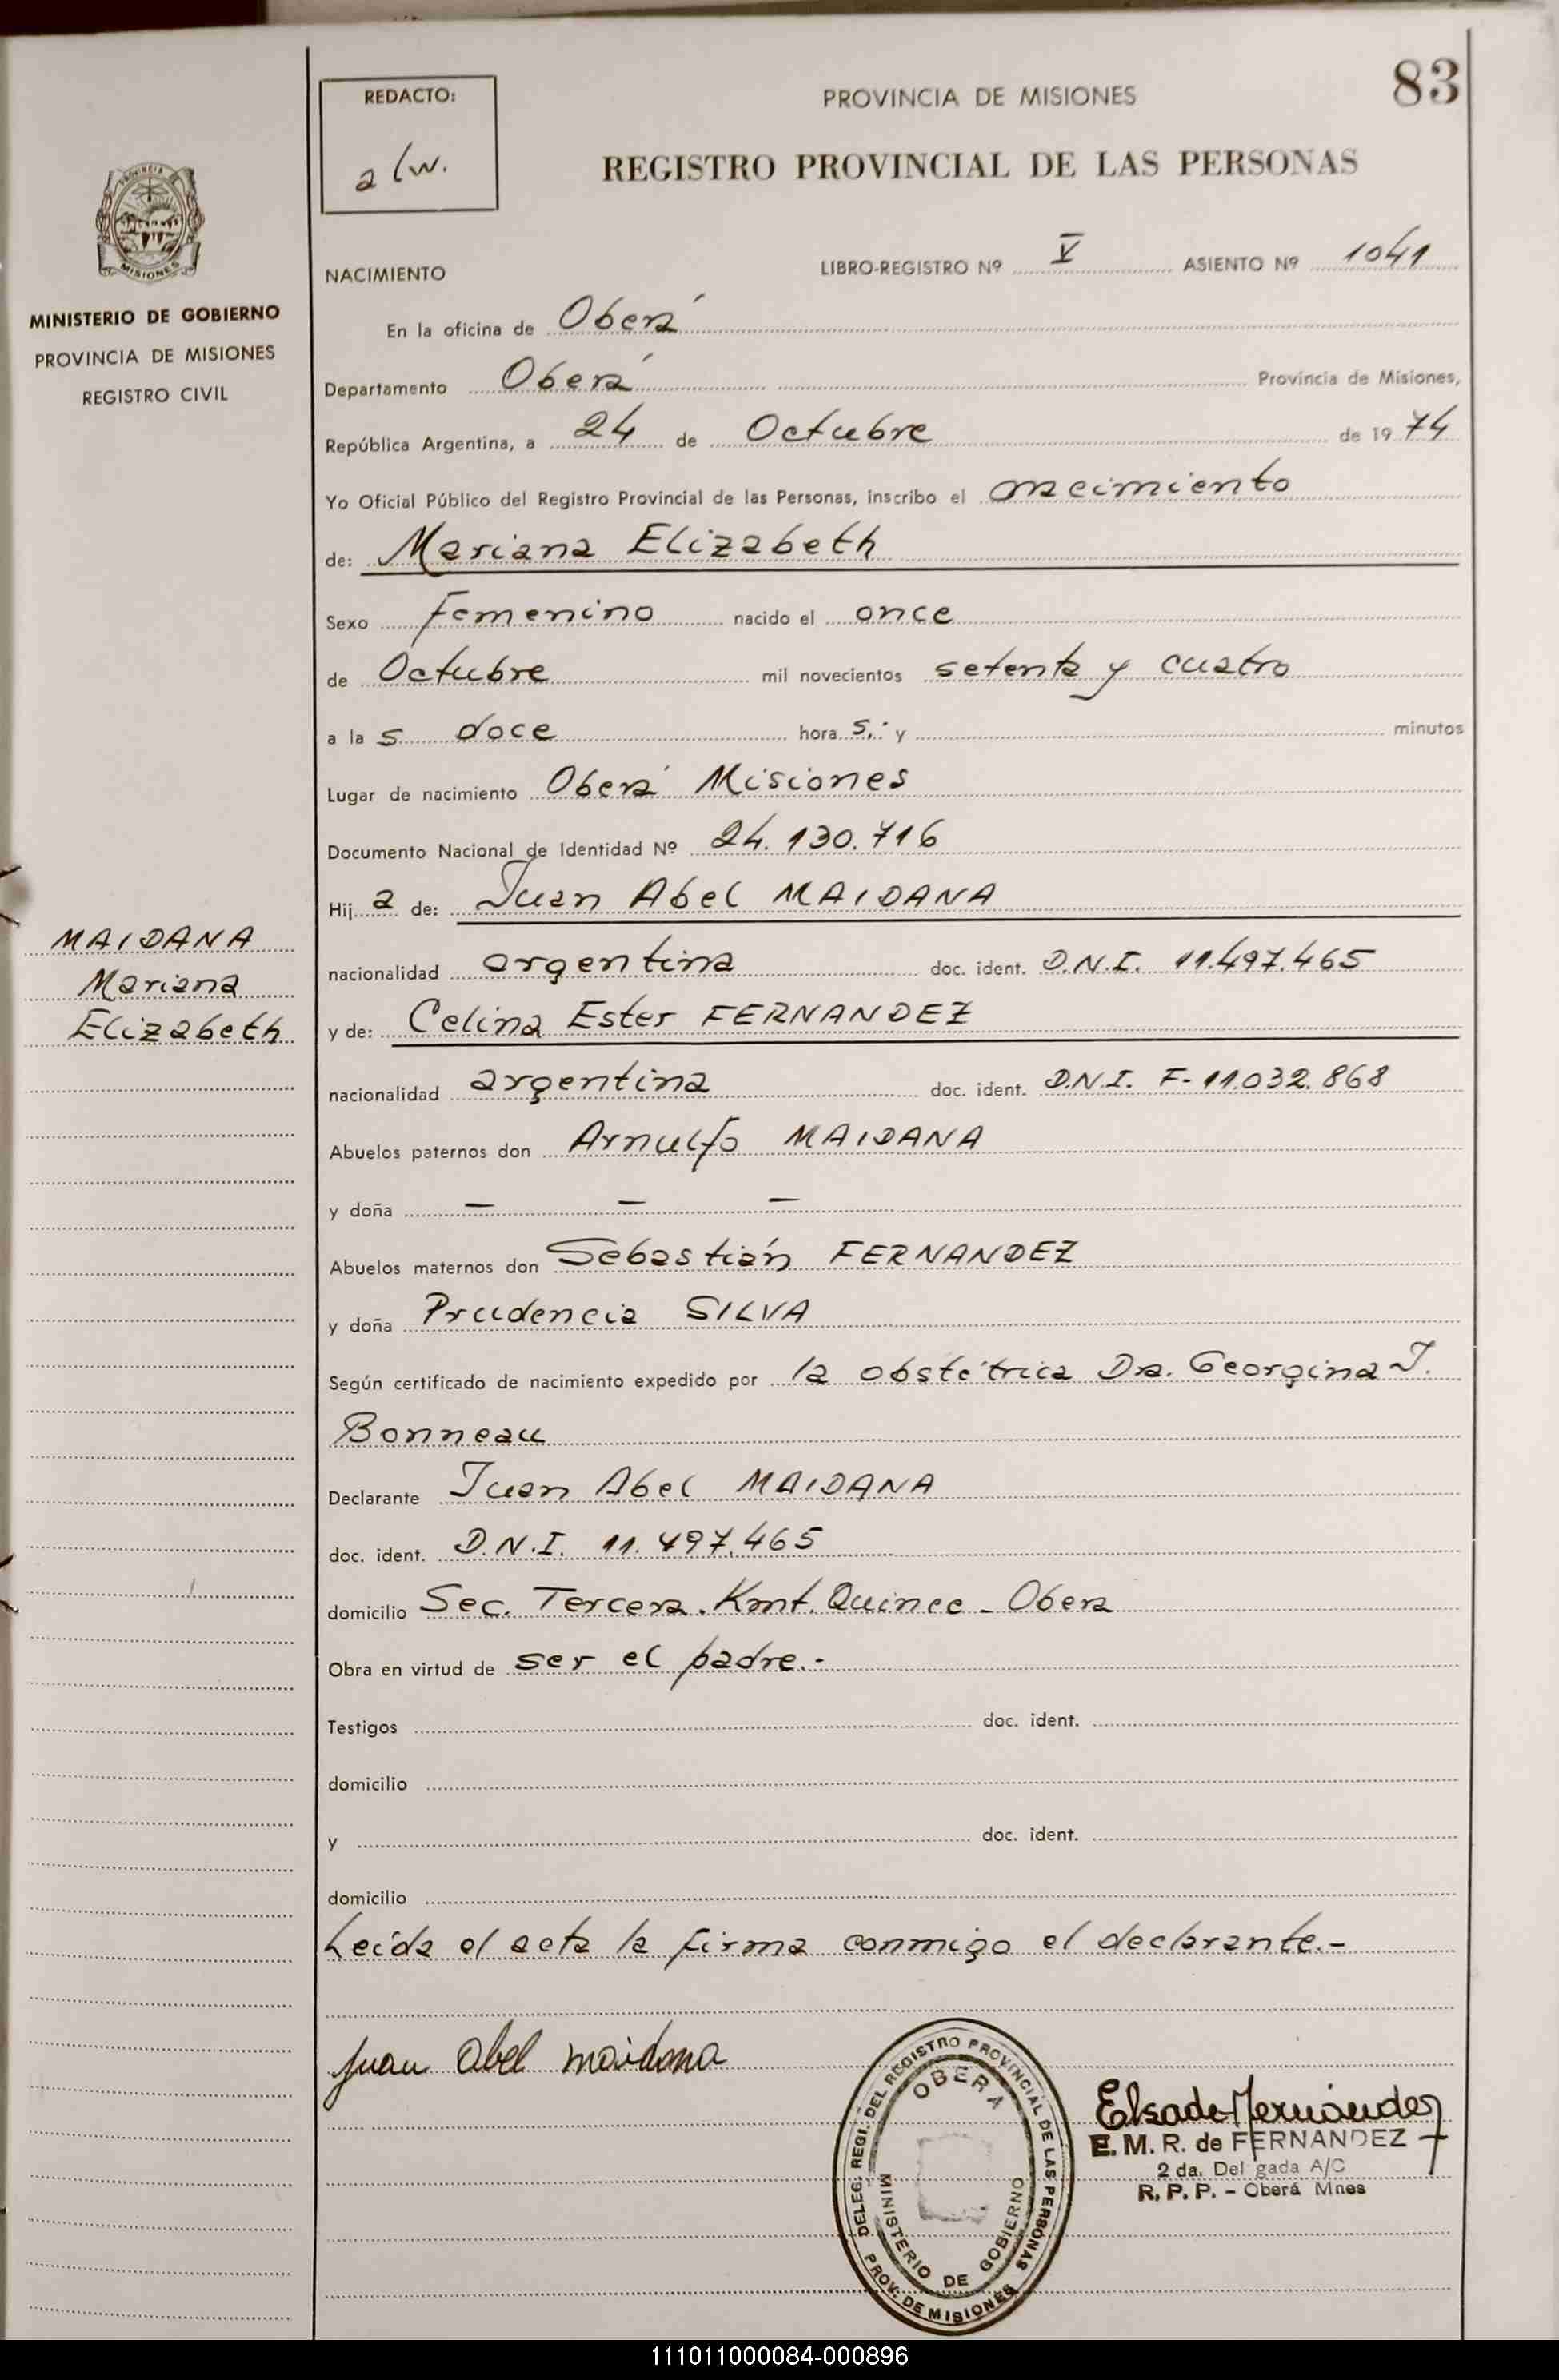 83
REDACTO:
a/w.
PROVINCIA DE MISIONES
REGISTRO PROVINCIAL DE LAS PERSONAS
PROVINCIA DE
MISIONES
MINISTERIO DE GOBIERNO
PROVINCIA DE MISIONES
REGISTRO CIVIL
NACIMIENTO
LIBRO-REGISTRO Nº V ASIENTO Nº 1041
En la oficina de Oberá
Departamento Oberá Provincia de Misiones,
República Argentina, a 24 de Octubre de 1974
Yo Oficial Público del Registro Provincial de las Personas, inscribo el nacimiento
de: Mariana Elizabeth
Sexo Femenino nacido el once
de Octubre mil novecientos setenta y cuatro
a las doce horas.- y minutos
Lugar de nacimiento Oberá Misiones
Documento Nacional de Identidad Nº 24.130.716
Hija de: Juan Abel MAIDANA
MAIDANA
Mariana
Elizabeth
nacionalidad argentina doc. ident. D.N.I. 11.497.465
y de: Celina Ester FERNANDEZ
nacionalidad argentina doc. ident. D.N.I. F-11.032.868
Abuelos paternos don Arnulfo MAIDANA
y doña — — —
Abuelos maternos don Sebastián FERNANDEZ
y doña Prudencia SILVA
Según certificado de nacimiento expedido por la obstétrica Dra. Georgina J.
Bonneau
Declarante Juan Abel MAIDANA
doc. ident. D.N.I. 11.497.465
domicilio Sec. Tercera. Kmt. Quince - Obera
Obra en virtud de ser el padre.-
Testigos doc. ident.
domicilio
y doc. ident.
domicilio
Leída el acta la firma conmigo el declarante.-
Juan Abel maidana
DELEG. REGI. DEL REGISTRO PROVINCIAL DE LAS PERSONAS
OBERA
MINISTERIO DE GOBIERNO
PROV. DE MISIONES
Elsa de Fernández
E. M. R. de FERNANDEZ
2 da. Del gada A/C
R. P. P. - Oberá Mnes
111011000084-000896